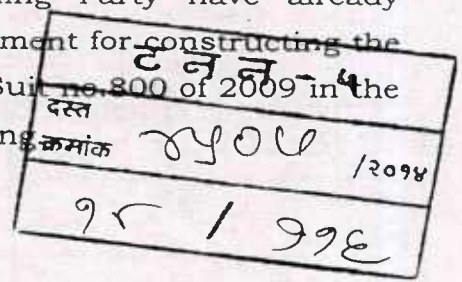 ing Party have already
ment for constructing the
ट न न - ५
Suit no.800 of 2009 in the
दस्त
ng
क्रमांक /२०१४
१८ / ११६